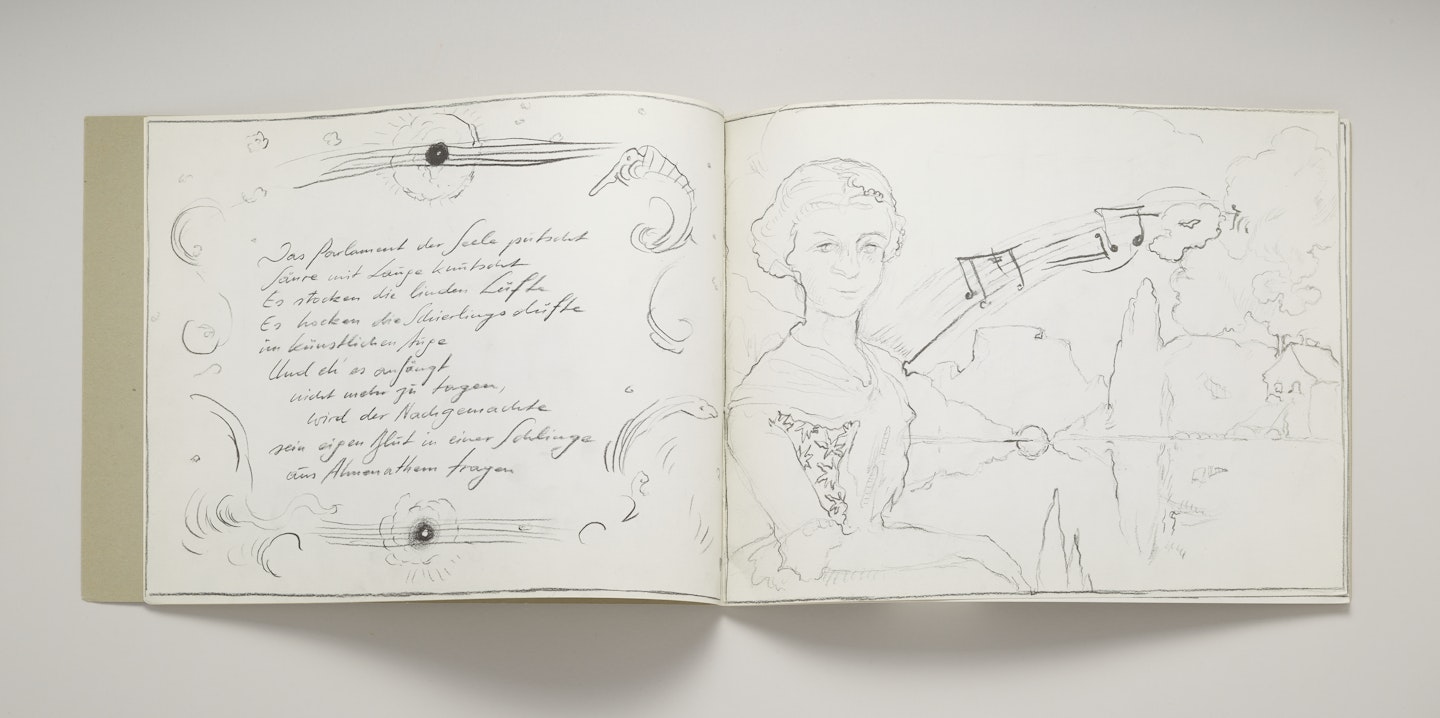 Das Parlament der Seele putscht
Säure mit Lauge knutscht
Es stocken die linden Lüfte
Es hocken die Schierlingsdüfte
im künstlichen
Und eh' es anfängt
nicht mehr zu tagen,
wird der Nachgemachte
sein eigen Blut in einer Schlinge
aus Ahnenathem tragen